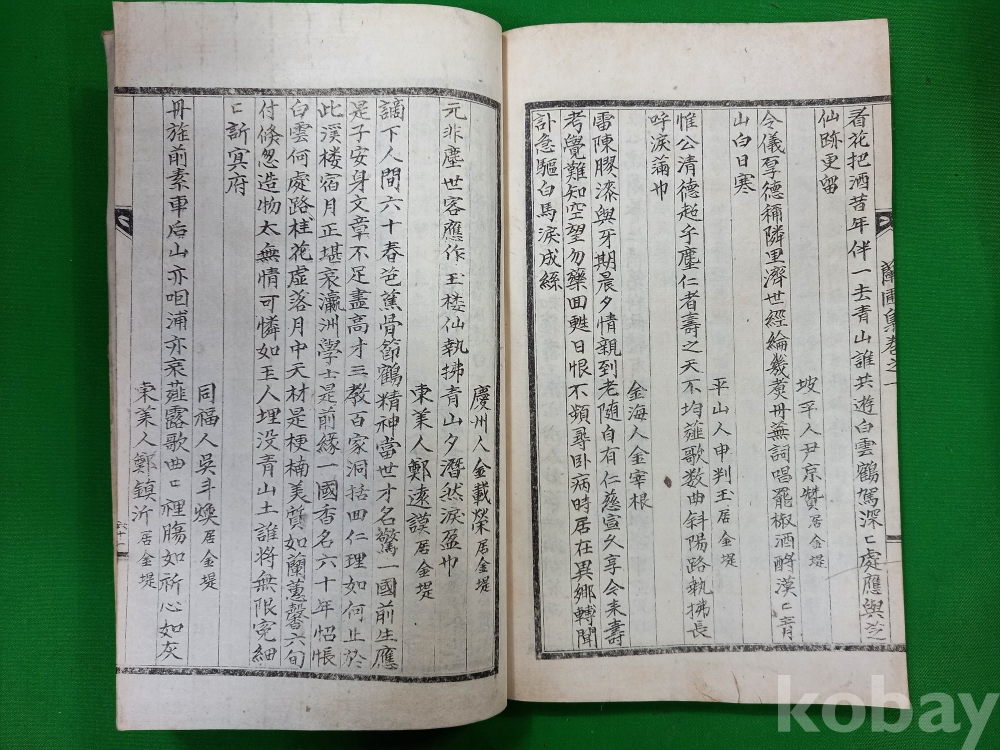 看花把酒昔年伴一去青山誰共遊白雲鶴駕深〻處應與
仙跡更留
坡平人尹京贊居金堤
令儀享德稱隣里濟世經綸幾煮丹蕪詞唱罷椒酒酹漠〻靑
山白日寒
平山人申判玉居金堤
惟公清德超乎塵仁者壽之天不均薤歌数曲斜陽路執拂長
呼淚滿巾
金海人金宰根
雷陳膠漆與牙期晨夕情親到老随自有仁慈宣久享令未壽
考覺難知空望勿藥回甦日恨不頻尋卧病時居在異鄉轉聞
訃急驅白馬淚成絲
蘭圃集卷之一
慶州人金載榮居金堤
元非塵世客應作玉楼仙執拂青山夕潛然淚盈巾
東萊人鄭遠謨居金堤
謫下人間六十春芭蕉骨節鶴精神當世才名驚一國前生應
是子安身文章不足盡高才三教百家洞括回仁理如何止於
此溪楼宿月正堪哀瀛洲學士是前緣一國香名六十年怊悵
白雲何處路桂花虛落月中天材是梗楠美質如蘭蕙馨六旬
付倐忽造物太無情可憐如玉人埋没青山土誰將無限寃細
〻訴冥府
同福人吳斗煥居金堤
丹旌前素車后山亦咽浦亦哀薤露歌曲〻裡膓如祈心如灰
東萊人鄭鎮沂居金堤
六十二
kobay